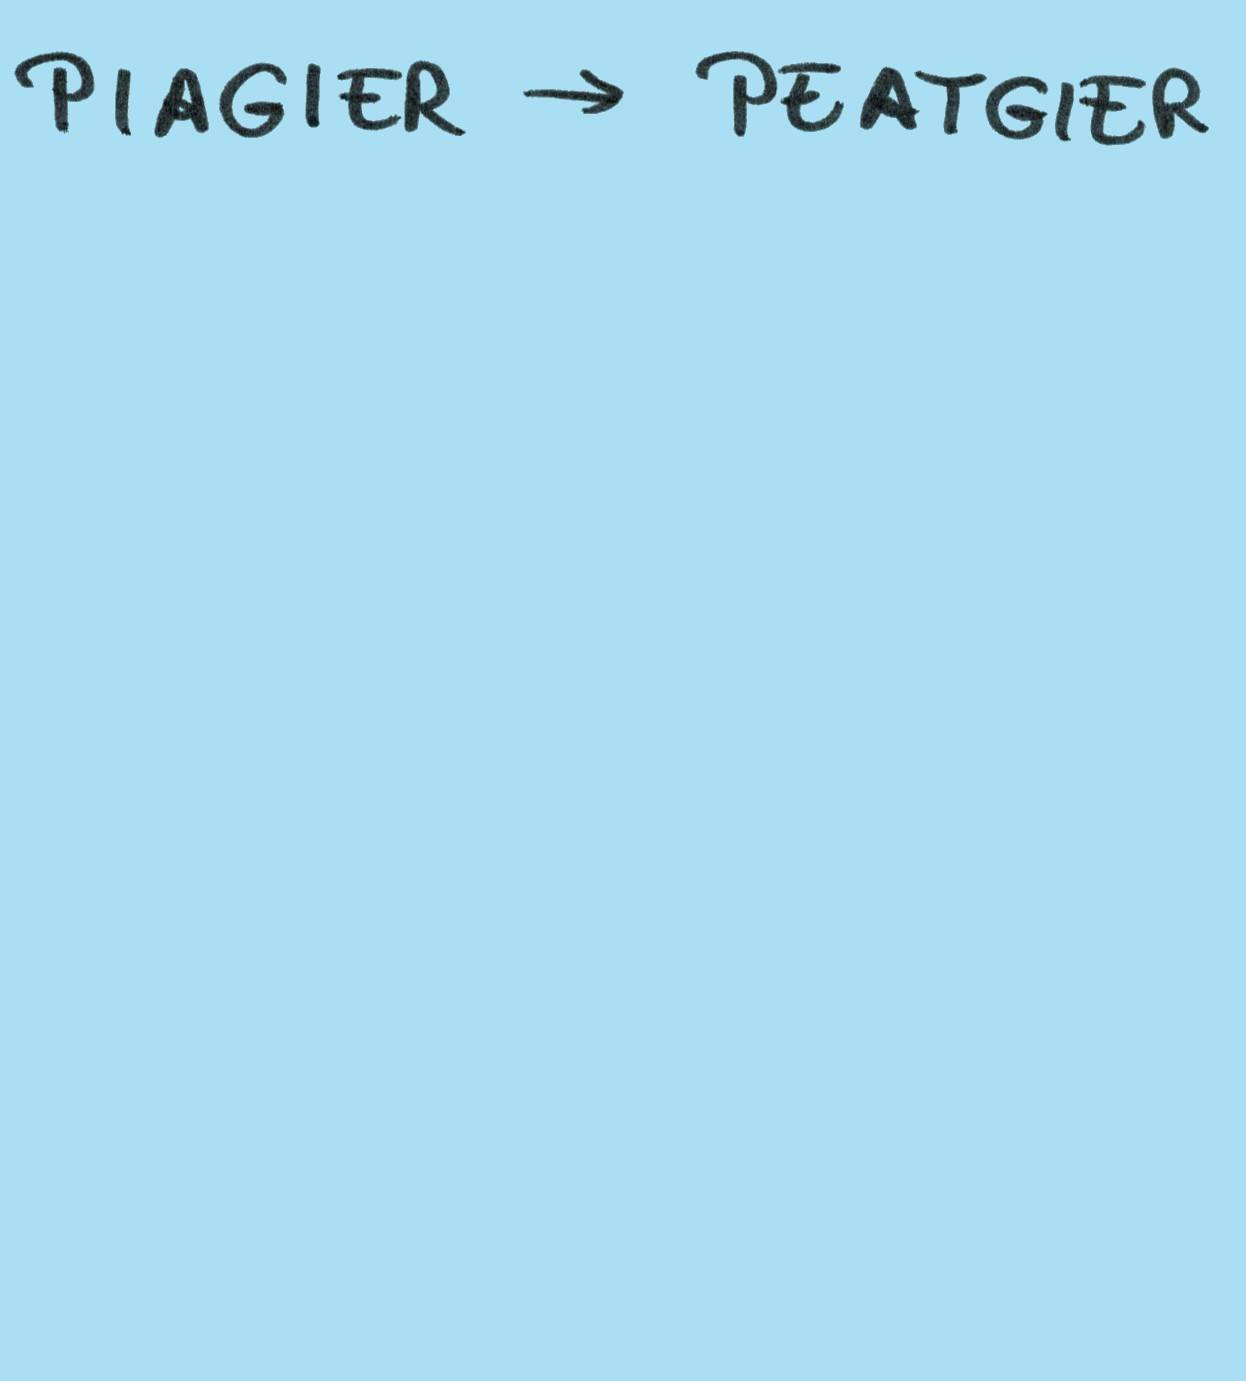 PIAGIER → PEATGIER